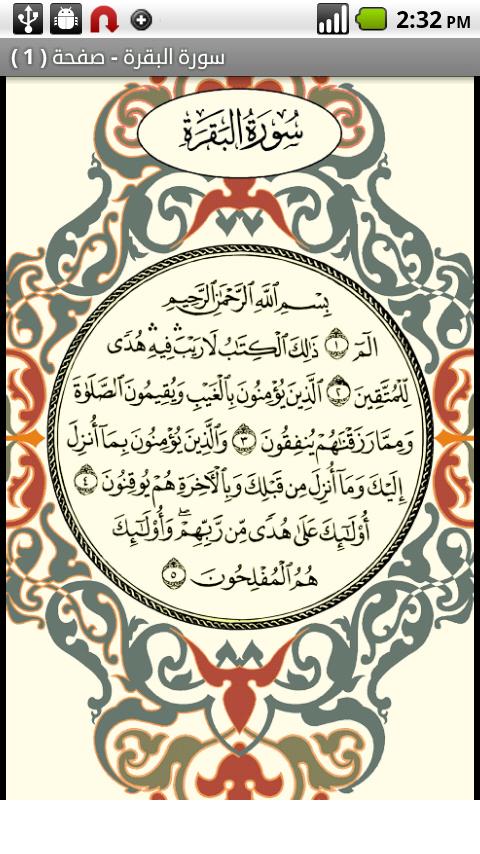 2:32 PM
سورة البقرة - صفحة ( 1 )
سُورَةُ البَقَرَةِ
بِسْمِ اللَّهِ الرَّحْمَٰنِ الرَّحِيمِ
الٓمٓ ١ ذَٰلِكَ الْكِتَٰبُ لَا رَيْبَ ۛ فِيهِ ۛ هُدًى
لِّلْمُتَّقِينَ ٢ الَّذِينَ يُؤْمِنُونَ بِالْغَيْبِ وَيُقِيمُونَ الصَّلَوٰةَ
وَمِمَّا رَزَقْنَٰهُمْ يُنفِقُونَ ٣ وَالَّذِينَ يُؤْمِنُونَ بِمَا أُنزِلَ
إِلَيْكَ وَمَا أُنزِلَ مِن قَبْلِكَ وَبِالْآخِرَةِ هُمْ يُوقِنُونَ ٤
أُوْلَٰٓئِكَ عَلَىٰ هُدًى مِّن رَّبِّهِمْ ۖ وَأُوْلَٰٓئِكَ
هُمُ الْمُفْلِحُونَ ٥